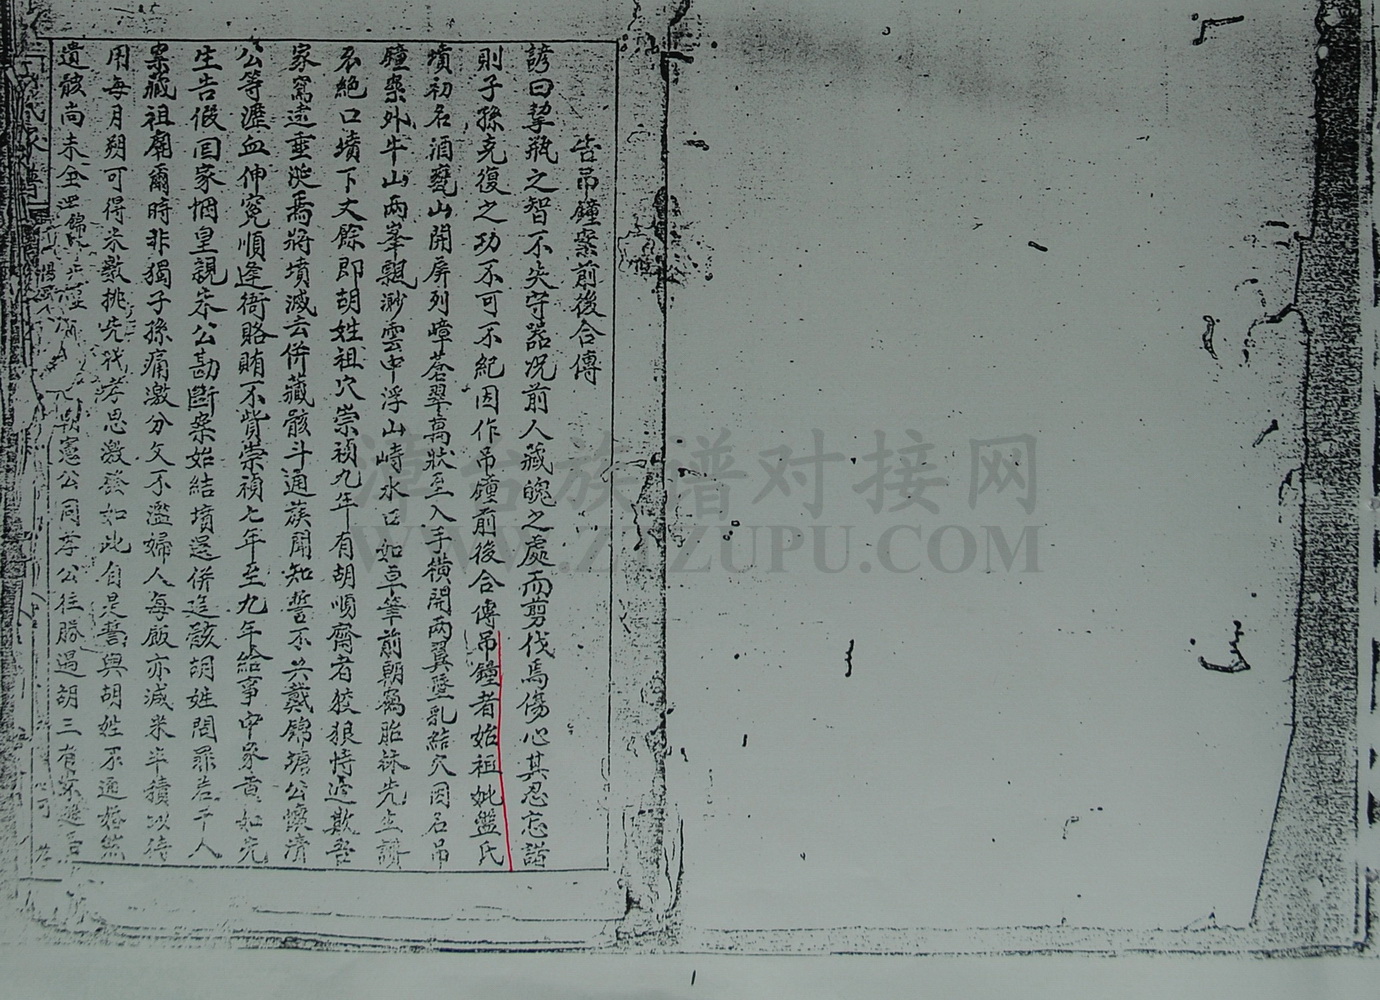 告吊鐘案前後合傳
諺曰挈瓶之智不失守器况前人藏魄之處而剪伐焉傷心其忍忘諸
則子孫克復之功不可不紀因作吊鐘前後合傳吊鐘者始祖妣盤氏
墳初名酒甕山開屏列嶂蒼翠萬狀至入手橫開兩翼墜乳結穴因名吊
鐘案外牛山兩峯飄渺雲中浮山峙水口如卓筆前朝為胎祿先生讚
不絕口墳下丈餘即胡姓祖穴崇禎九年有胡順齋者狡狠恃遠欺吾
家寫遠垂涎焉將墳滅去併藏骸斗通族聞知誓不共戴錦塘公懷清
公等瀝血伸冤順逢衙賂賄不貲崇禎七年至九年給事中家黃如先
生告假回家悃皇親宋公勘斷案始結墳還併追骸胡姓問罪者千人
案藏祖廟爾時非獨子孫痛激分文不濫婦人每飯亦減米半積以待
用每月朔可得米數挑先代孝思激發如此自是誓與胡姓不通婚然
遺骸尚未全 憲公同孝公往勝過胡三有
漳台族谱对接网
WWW.ZTZUPU.COM
1